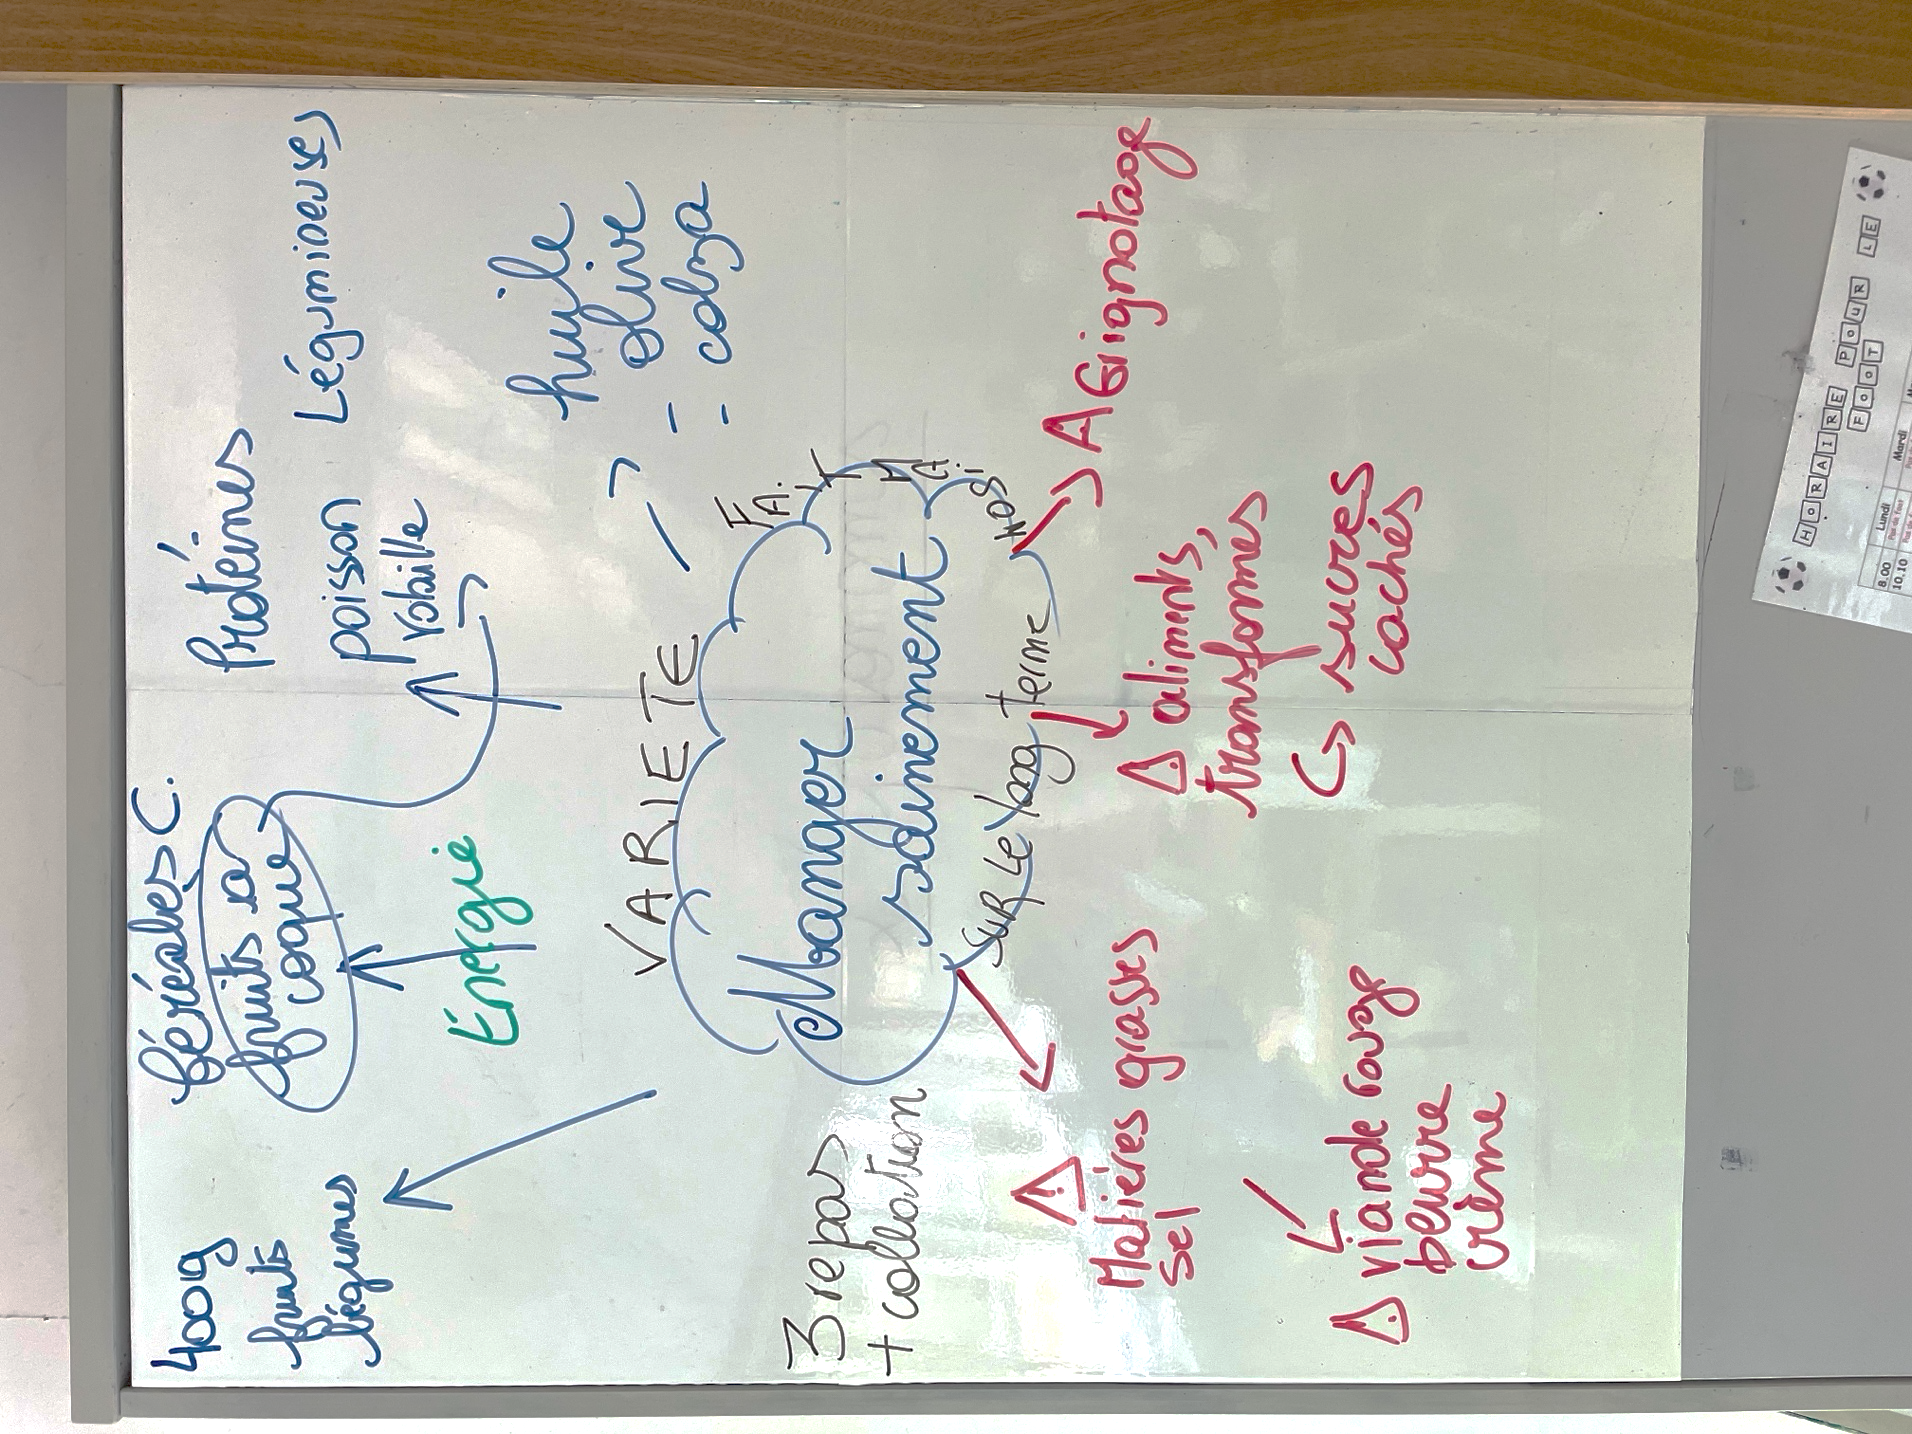 400g
fruits
légumes
Céréales C.
fruits à
coque
Énergie
Protéines
poisson
volaille
Légumineuses
huile
- olive
- colza
VARIETE
Manger
sainement
SUR LE long terme
3 repas
+ collation
Matières grasses
sel
viande rouge
beurre
crème
aliments
transformés
↳ sucres
cachés
Grignotage
HORAIRE POUR LE
FOOT
Lundi
Mardi
8.00
10.10